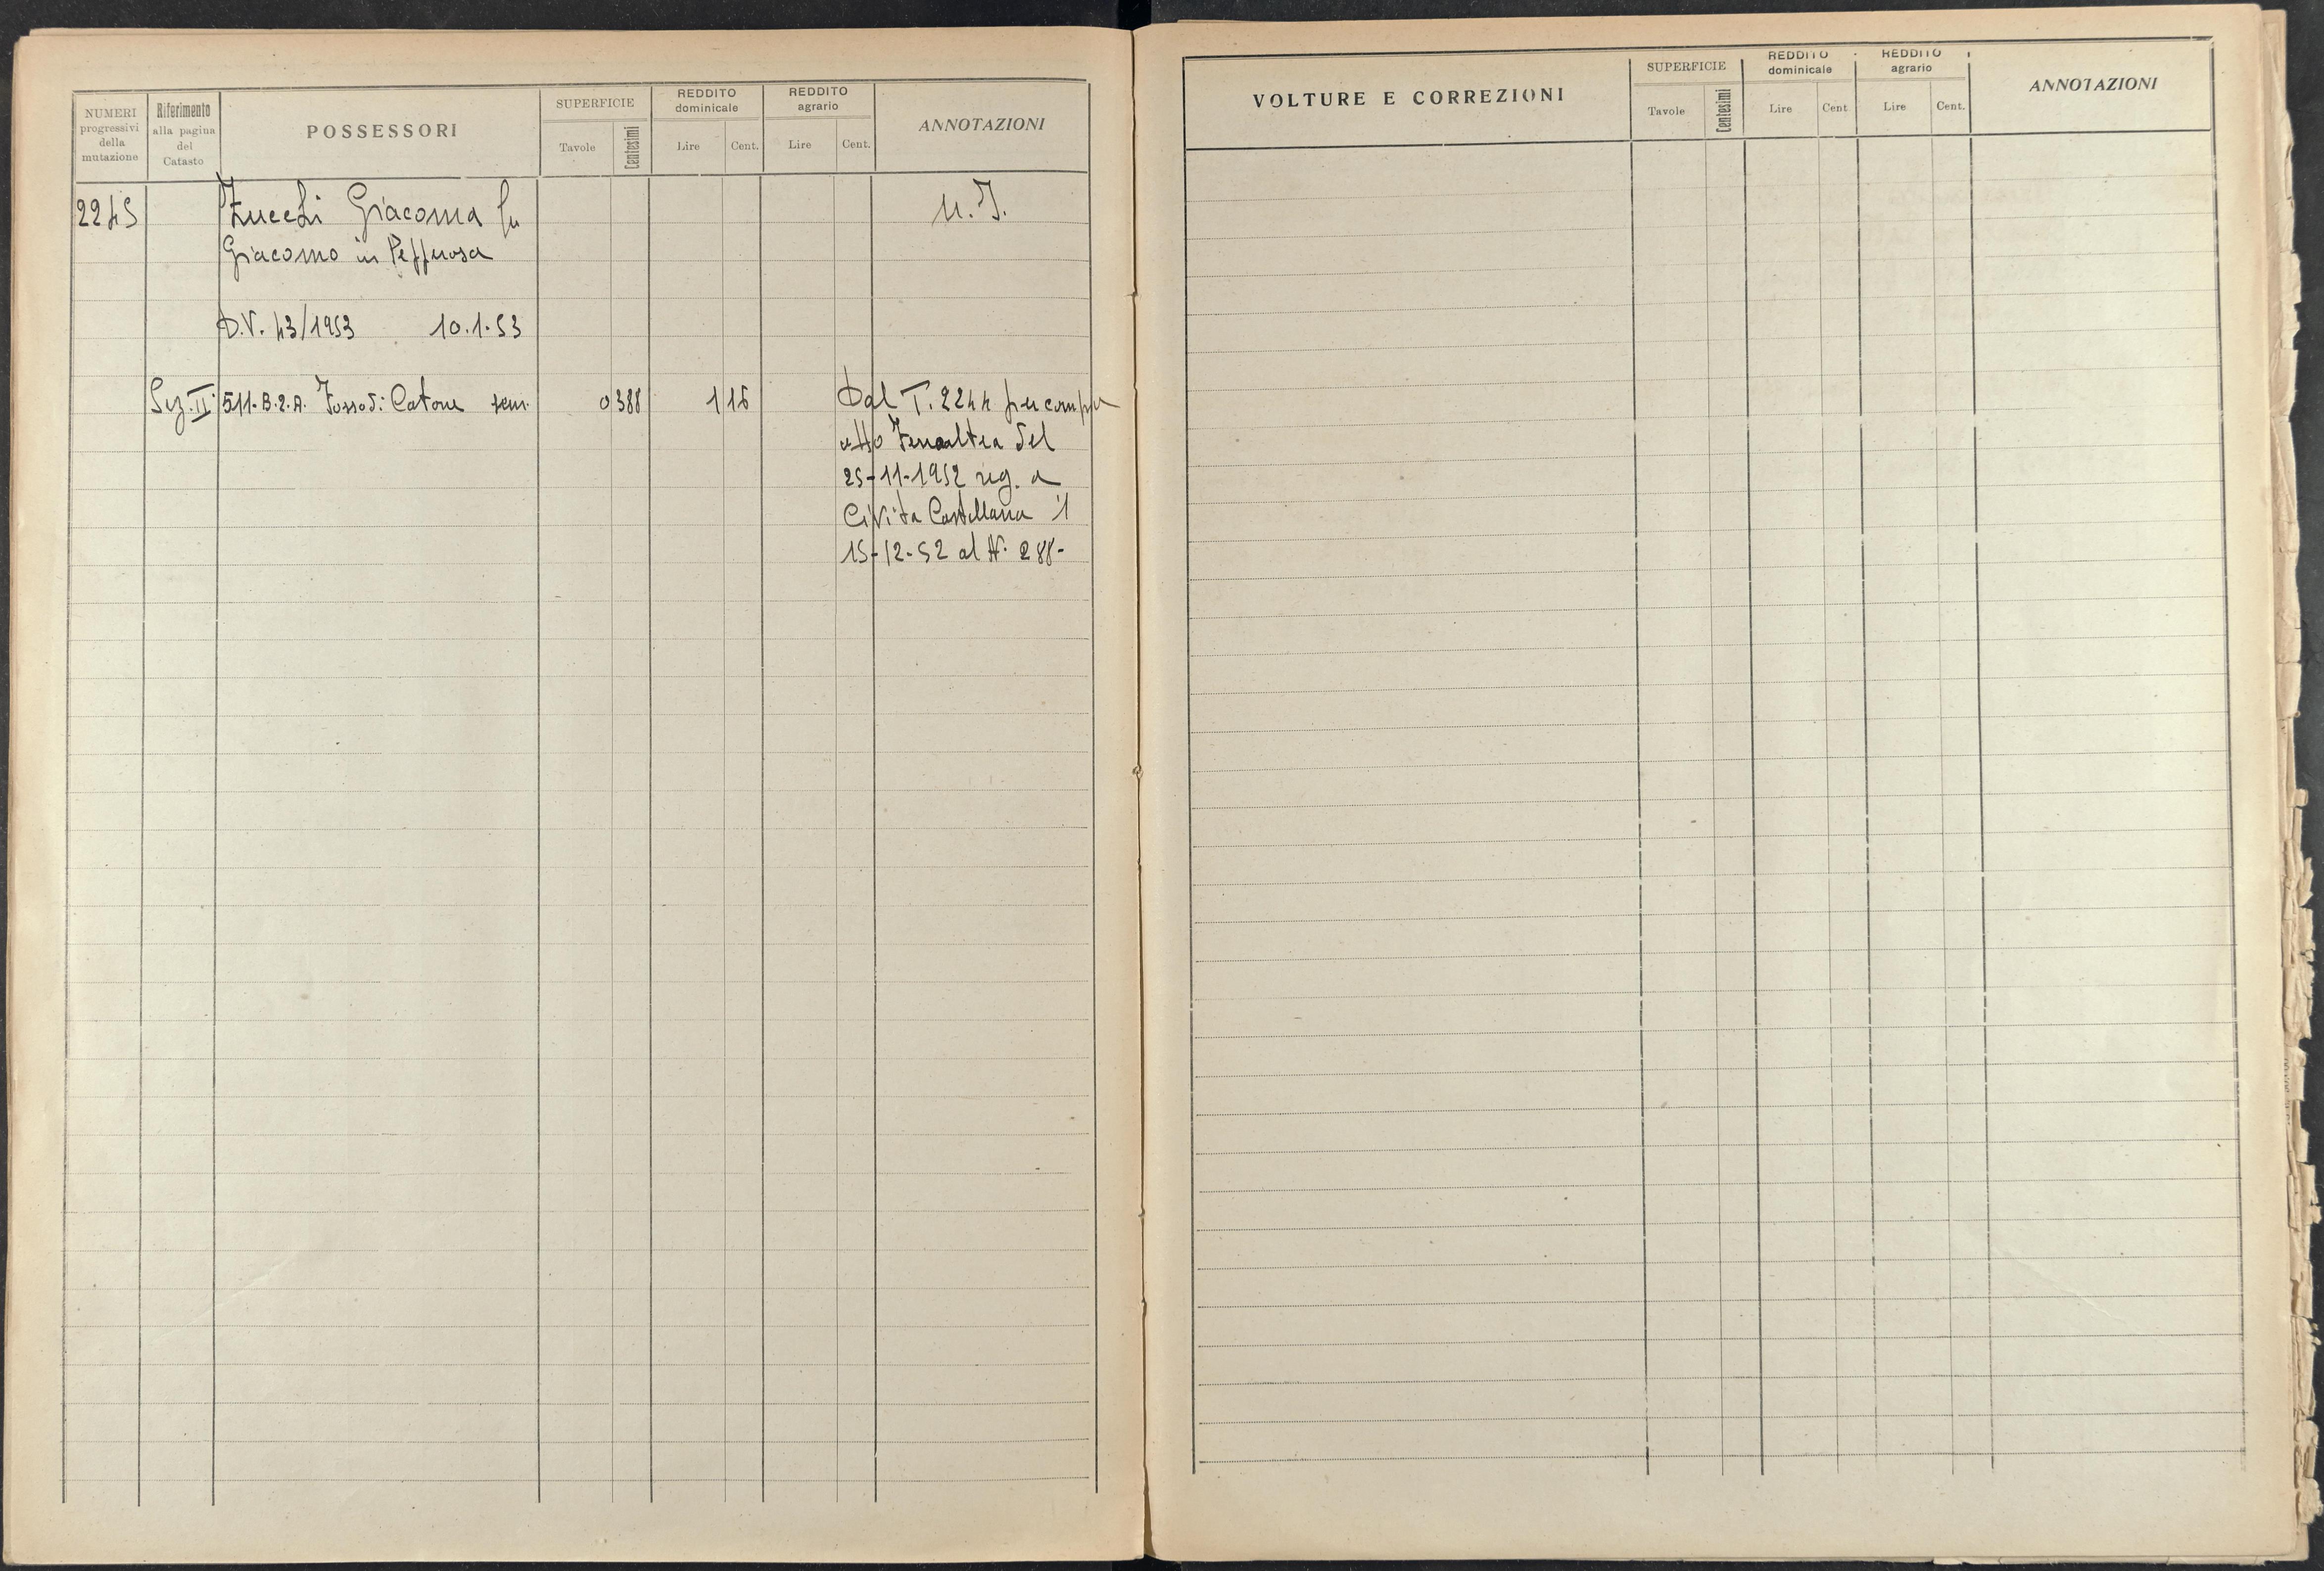 NUMERI progressivi della mutazione
Riferimento alla pagina del Catasto
POSSESSORI
SUPERFICIE
Tavole Centesimi
REDDITO dominicale
Lire Cent.
REDDITO agrario
Lire Cent.
ANNOTAZIONI
2245 Zucchi Giacoma fu
Giacomo in
D.V. 43/1953 10.1.53
Sez. II 511.B.2.A. Fosso di Catone sem. 0 388 1 16
Dal T. 2244 per compra
atto del
25-11-1952 reg. a
Civita Castellana il
15-12-52 al N. 288-
VOLTURE E CORREZIONI
SUPERFICIE
Tavole Centesimi
REDDITO dominicale
Lire Cent
REDDITO agrario
Lire Cent.
ANNOTAZIONI